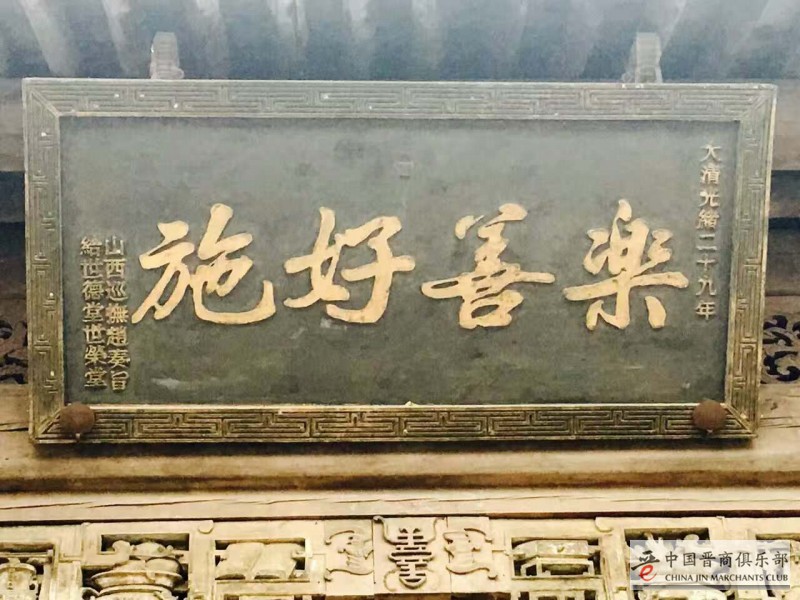 大清光緒二十九年
楽善好施
山西巡撫趙奏旨
給世德堂世榮堂
中国晋商俱乐部
CHINA JIN MARCHANTS CLUB